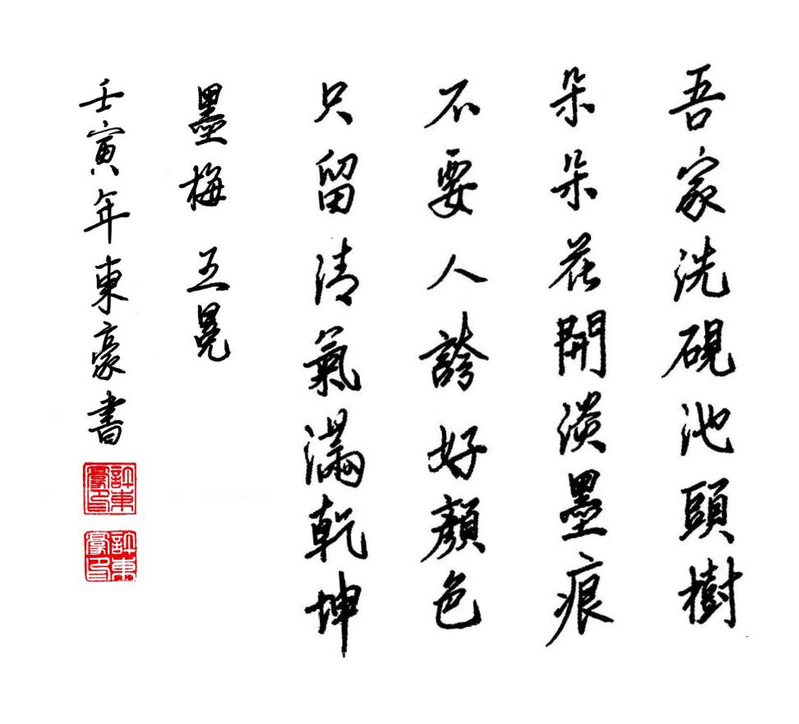 吾家洗硯池頭樹
朵朵花開淡墨痕
不要人誇好顏色
只留清氣滿乾坤
墨梅 王冕
壬寅年東豪書
許東豪印
許東豪印